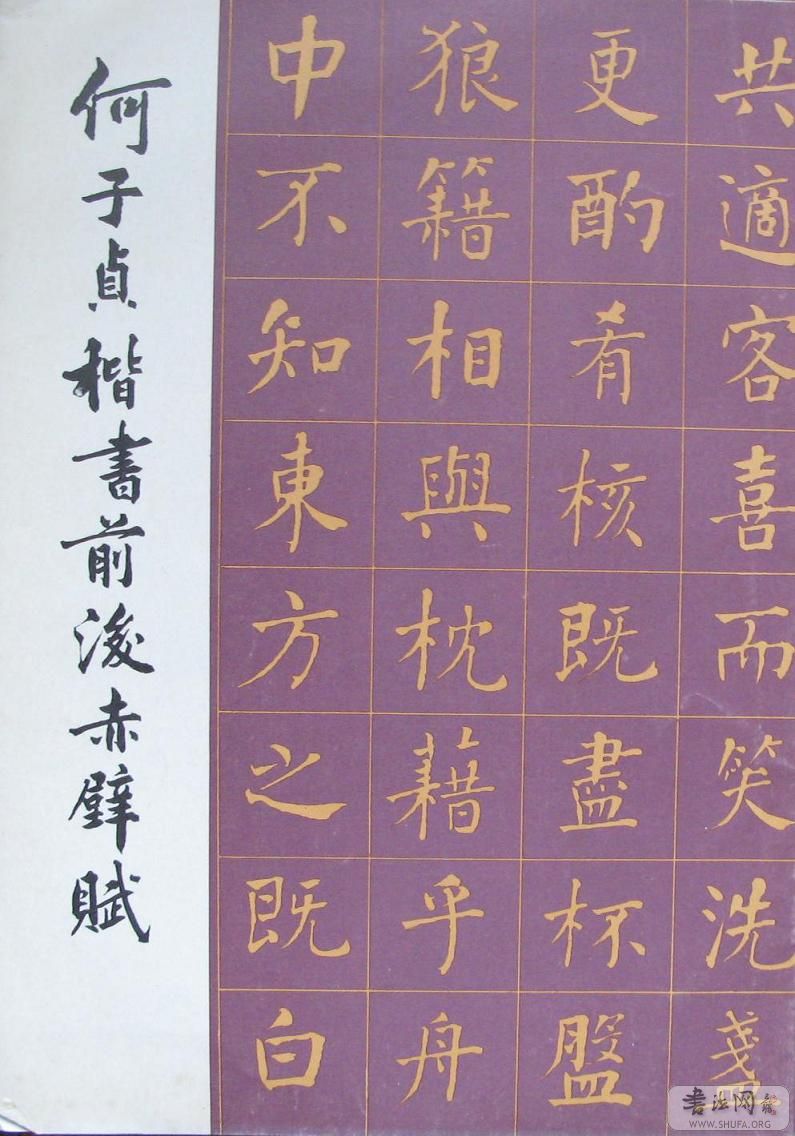 共適客喜而笑洗盞
更酌肴核既盡杯盤
狼籍相與枕藉乎舟
中不知東方之既白
何子貞楷書前後赤壁賦
書法网
WWW.SHUFA.ORG